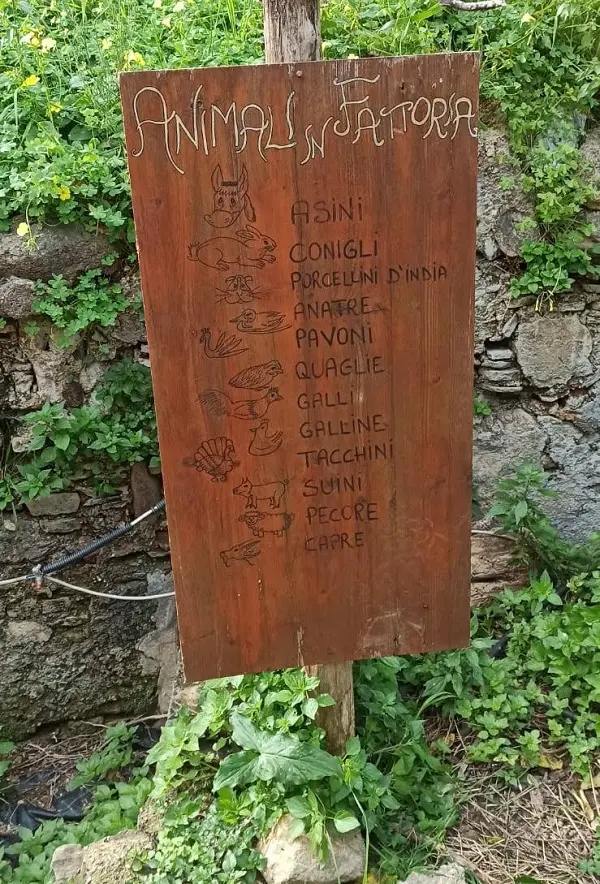 ANIMALI IN FATTORIA
ASINI
CONIGLI
PORCELLINI D'INDIA
ANATRE
PAVONI
QUAGLIE
GALLI
GALLINE
TACCHINI
SUINI
PECORE
CAPRE